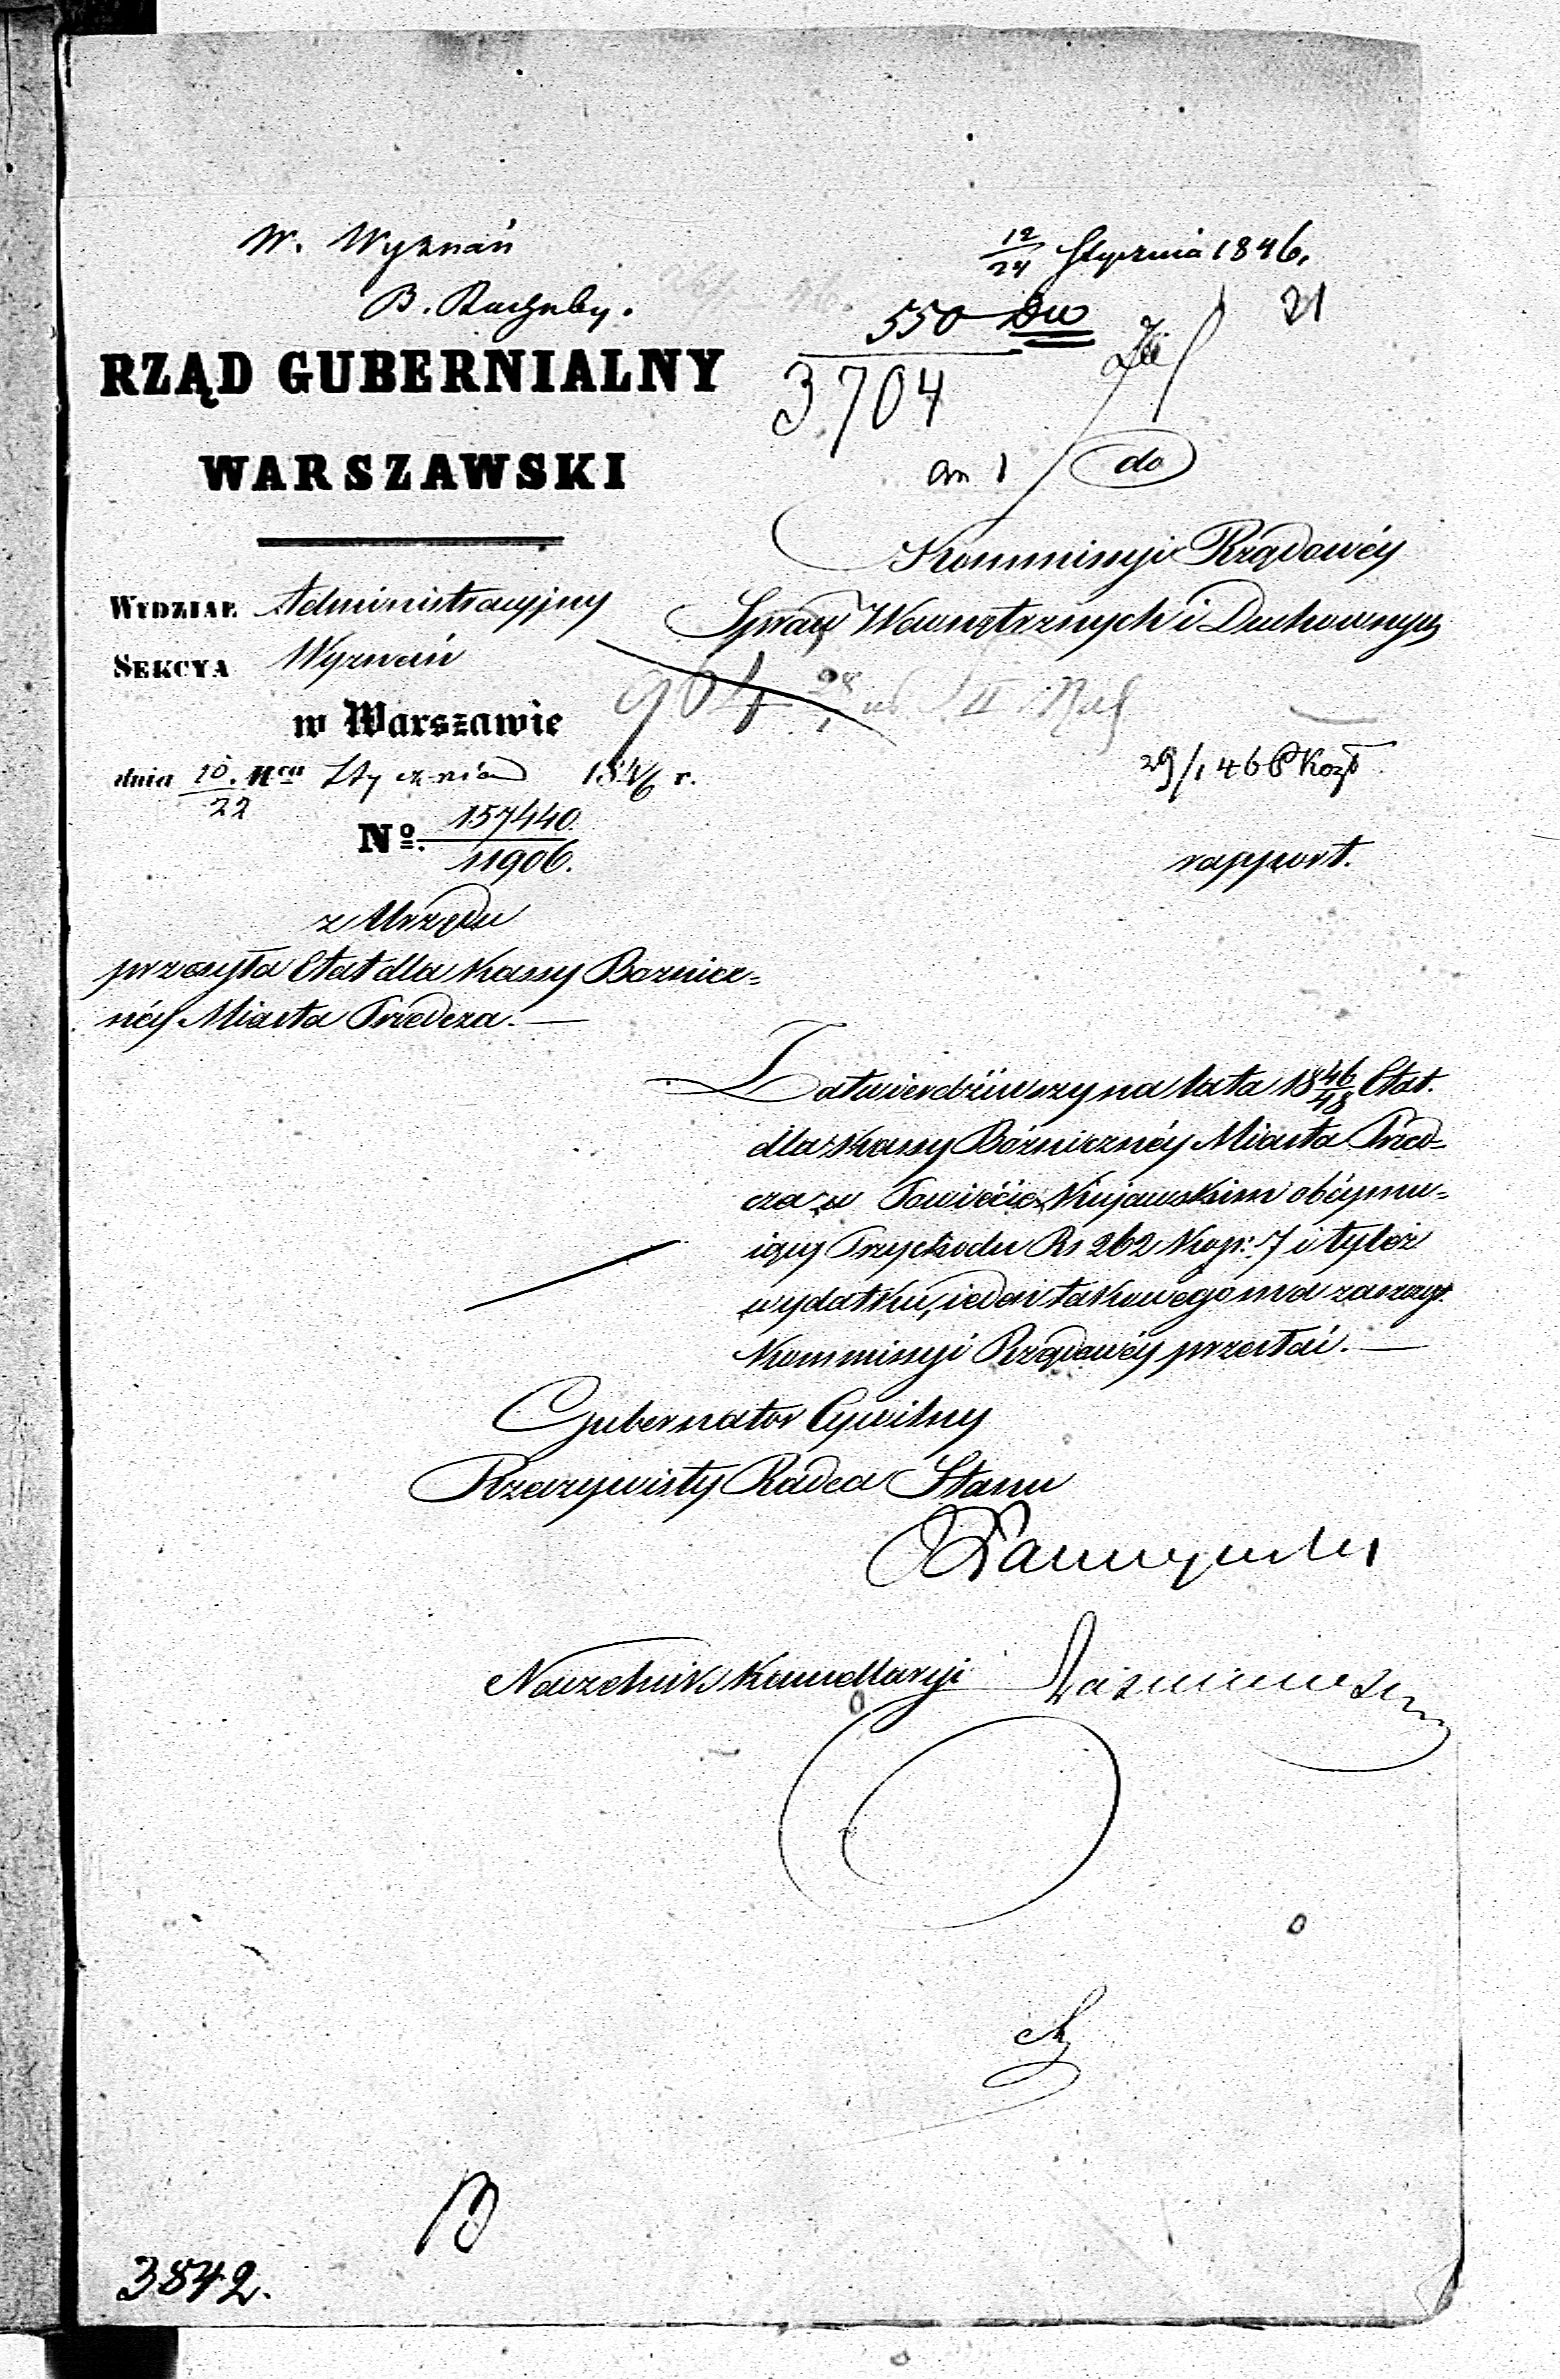 W. Wyznań
B. Rachuby.
12/24 Stycznia 1846.
21
550 Dw
3704
an 1
do
RZĄD GUBERNIALNY
WARSZAWSKI
Kommissyi Rządowéy
Spraw Wewnętrznych i Duchownych
WYDZIAŁ Administracyjny
SEKCYA Wyznań
w Warszawie
dnia 10/22 Mca Stycznia 1846 r.
No. 157440/11906.
964 28/1 II
29/1 46
rapport.
z Urzędu
przesyła Etat dla Kassy Boznicz=
néy Miasta Przedcza.—
Zatwierdziwszy na lata 1846/48 Etat.
dla Kassy Bóżnicznéy Miasta Przed=
cza w Powiecie Kujawskim obéymu=
iący Przychodu Rs 262 Kop: 7 i tyleż
wydatku, ieden takowego ma zaszczyt
Kommissyi Rządowéy przesłać.—
Gubernator Cywilny
Rzeczywisty Radca Stanu
Naczelnik Kancellaryi
3842.